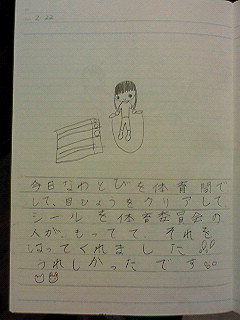 今日なわとびを体育館で
して、目ひょうをクリアして
シールを体育委員会の
人が、もってて、それを
はってくれました
うれしかったです